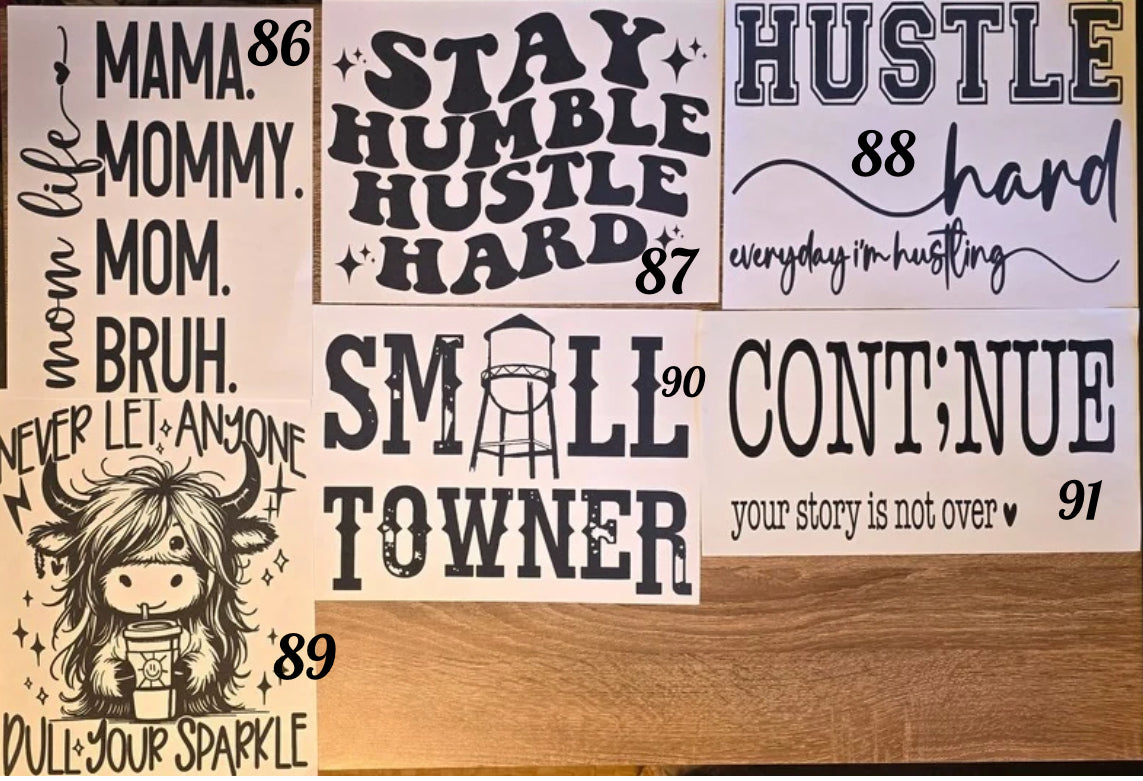 MAMA.
MOMMY.
MOM.
BRUH.
mom life
86
STAY
HUMBLE
HUSTLE
HARD
87
HUSTLE
hard
everyday i'm hustling
88
NEVER LET ANYONE
DULL YOUR SPARKLE
89
SMALL
TOWNER
90
CONT;NUE
your story is not over
91